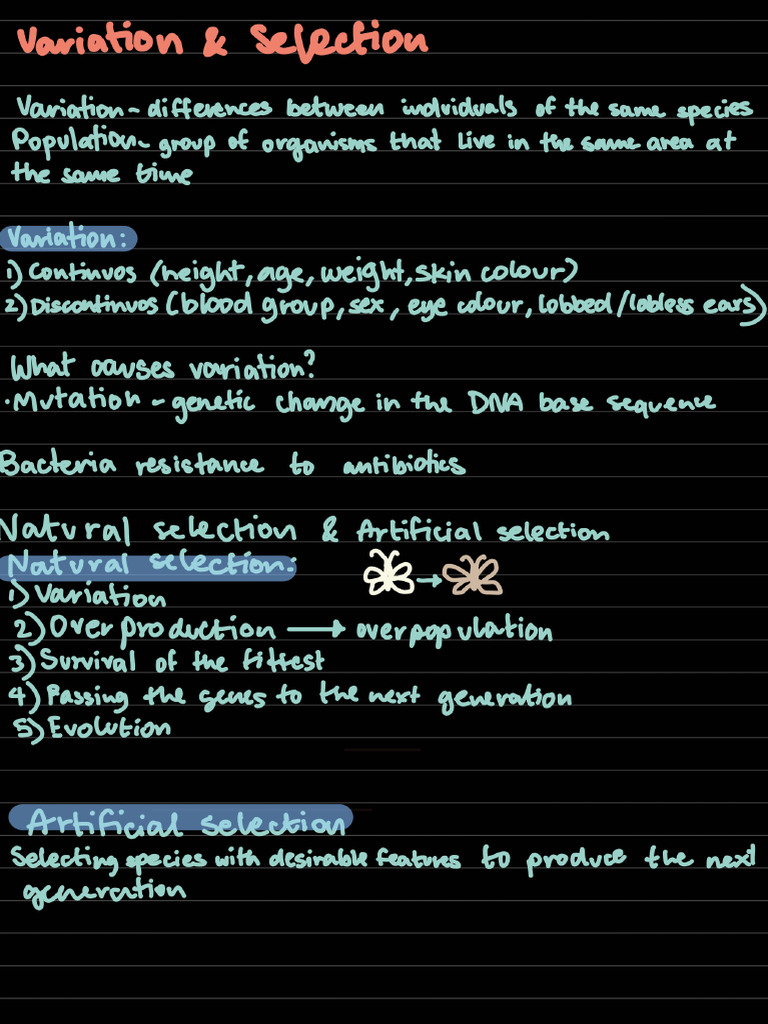 Variation & Selection
Variation - differences between individuals of the same species
Population - group of organisms that live in the same area at
the same time
Variation:
1) Continuos (height, age, weight, skin colour)
2) Discontinuos (blood group, sex, eye colour, lobbed/lobless ears)
What causes variation?
· Mutation - genetic change in the DNA base sequence
Bacteria resistance to antibiotics
Natural selection & Artificial selection
Natural selection:
1) Variation
2) Over production → overpopulation
3) Survival of the fittest
4) Passing the genes to the next generation
5) Evolution
Artificial selection
Selecting species with desirable features to produce the next
generation